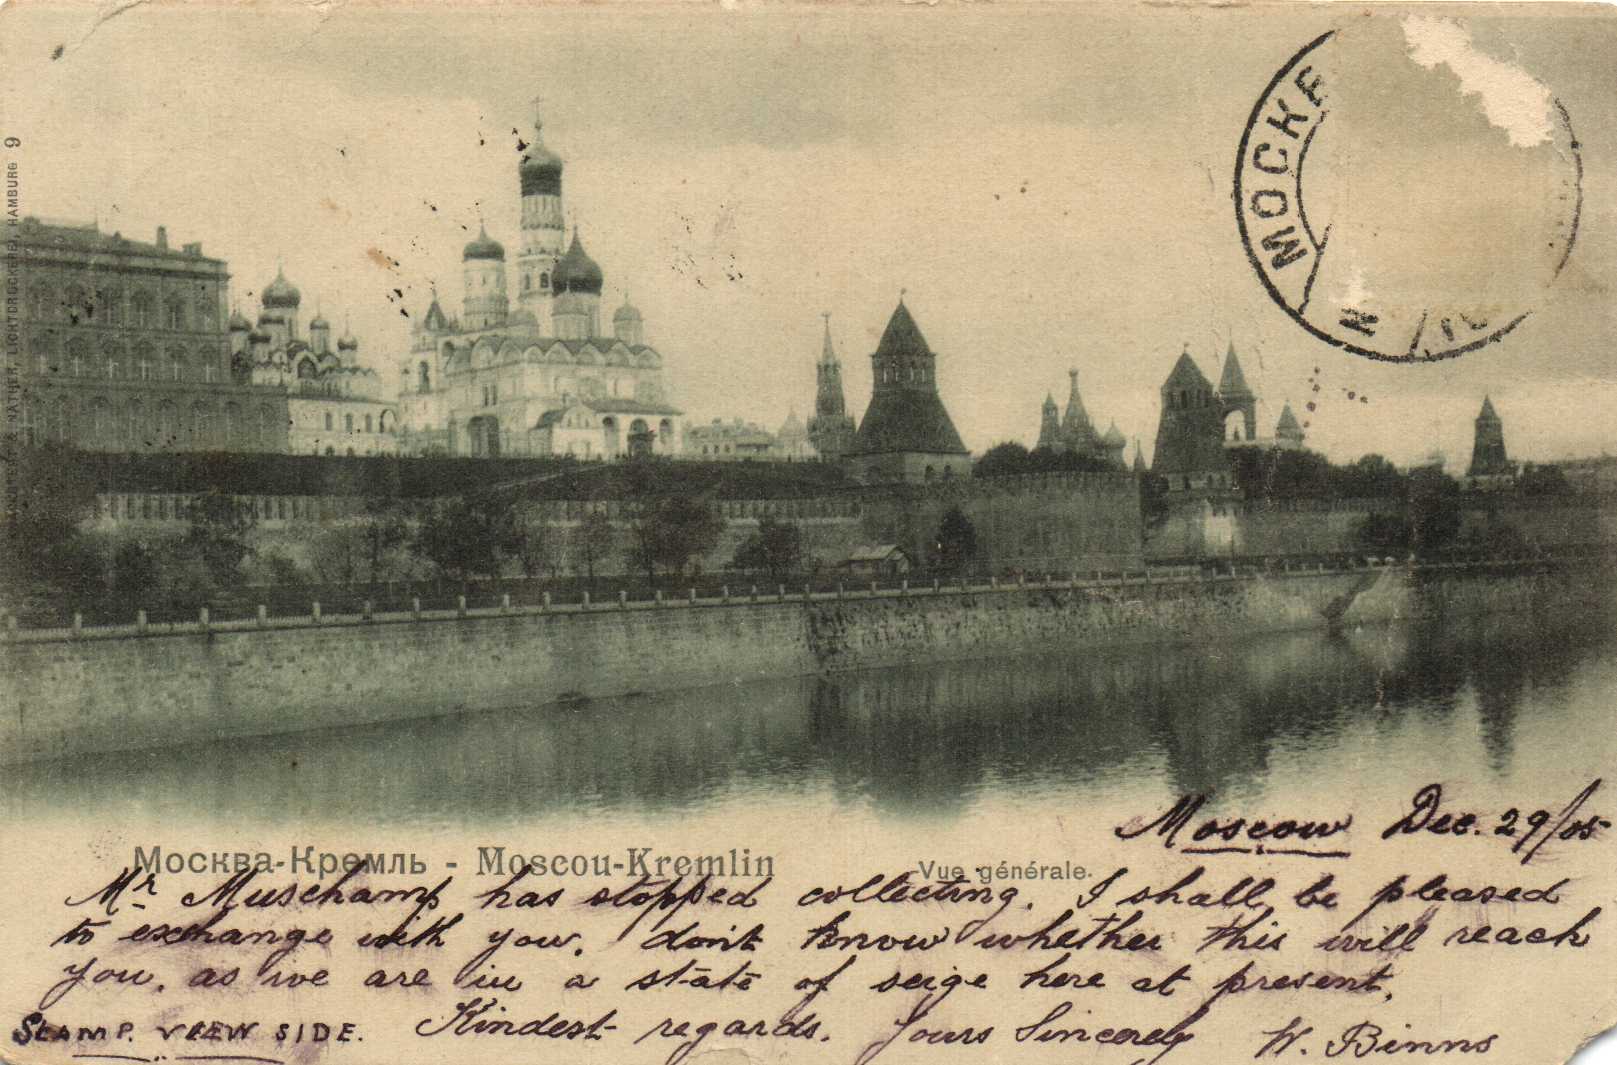 МОСКВ
Москва-Кремль - Moscou-Kremlin
Vue générale.
Moscow Dec. 29/05
Mr Muschamp has stopped collecting. I shall be pleased
to exchange with you. don't know whether this will reach
you, as we are in a state of seige here at present.
STAMP. VIEW SIDE. Kindest regards. Yours Sincerely W. Binns
NATHER, LICHTDRUCKEREI, HAMBURG 9